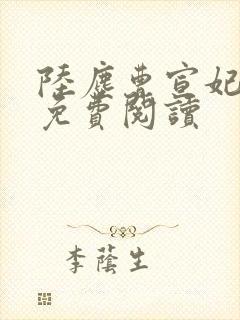 陸塵曹宣妃
免費閱讀
李蔭生